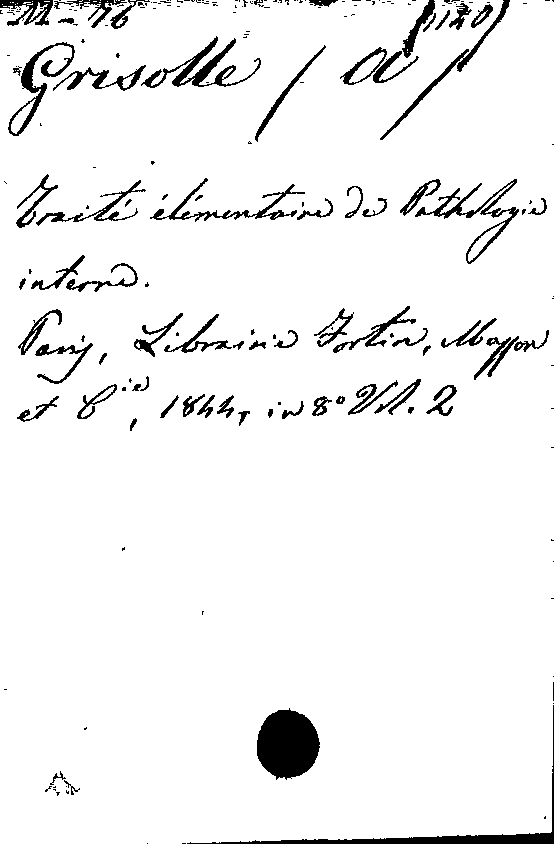 M-76
Grisolle / A /
Traité élémentaire de Pathologie
interne.
Paris, Librairie Fortin, Masson
et Cie, 1844, in 8° Vol. 2